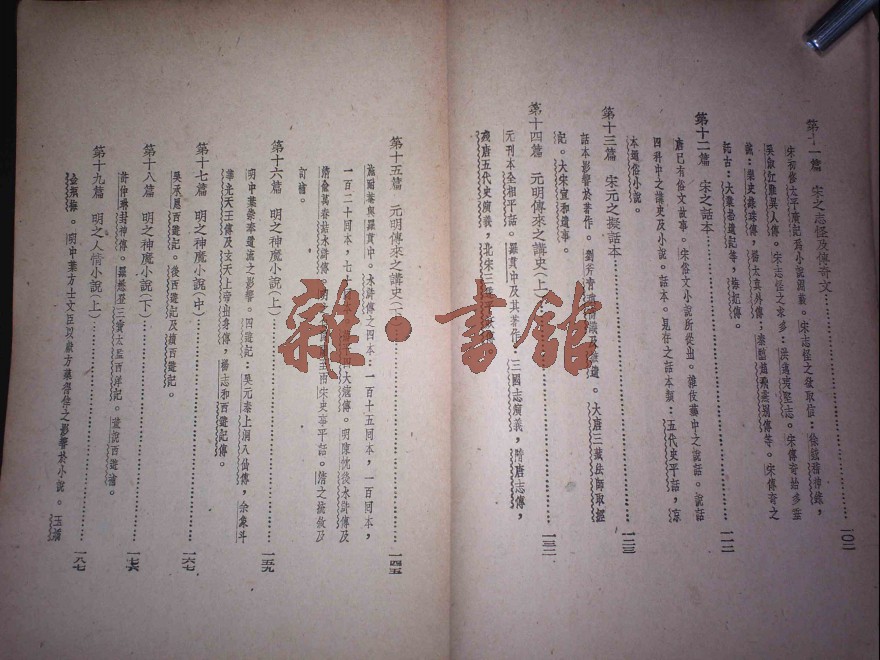 第十一篇 宋之志怪及傳奇文……一〇二
宋初修太平廣記為小說淵藪。宋志怪之欲取信：徐鉉稽神錄，
吳淑江淮異人傳。宋志怪之求多：洪邁夷堅志。宋傳奇始多垂
誡：樂史綠珠傳，楊太真外傳；秦醇趙飛燕別傳等。宋傳奇之
託古：大業拾遺記等，梅妃傳。
第十二篇 宋之話本……一一二
唐已有俗文故事。宋俗文小說所從出。雜伎藝中之說話。說話
四科中之講史及小說。話本。見在之話本類：五代史平話，京
本通俗小說。
第十三篇 宋元之擬話本……一二三
話本影響於著作。劉斧青瑣 及 遺。大唐三藏法師取經
記。大宋宣和遺事。
第十四篇 元明傳來之講史（上）……一三二
元刊本全相平話。羅貫中及其著作：三國志演義，隋唐志傳，
殘唐五代史演義，北宋三
第十五篇 元明傳來之講史（下）……一四五
施耐菴與羅貫中。水滸傳之四本：一百十五回本，一百回本，
一百二十回本，七 大寇傳。明陳忱後水滸傳及
清俞萬春結水滸傳 雨宋史事平話。清之統敘及
訂補。
第十六篇 明之神魔小說（上）……一五九
明中葉崇奉道流之影響。四遊記：吳元泰上洞八仙傳，余象斗
華光天王傳及玄天上帝出身傳，楊志和西遊記傳。
第十七篇 明之神魔小說（中）……一六七
吳承恩西遊記。後西遊記及續西遊記。
第十八篇 明之神魔小說（下）……一七六
許仲琳封神傳。羅懋登三寶太監西洋記。董說西遊補。
第十九篇 明之人情小說（上）……一八七
金瓶梅。明中葉方士文臣以獻方藥得倖之影響於小說。玉嬌
雜·書館